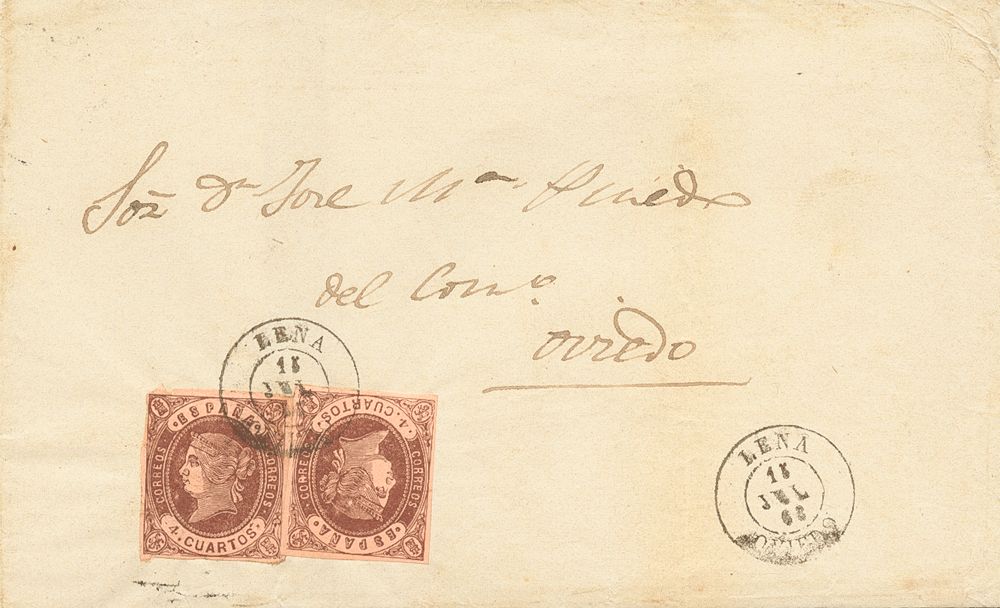 Sor Dn Jose Ma Pinedo
del Como
Oviedo
LENA
15
JUL
LENA
15
JUL
63
OVIEDO
ESPAÑA
CORREOS
CORREOS
4. CUARTOS
4. CUARTOS
CORREOS
CORREOS
ESPAÑA